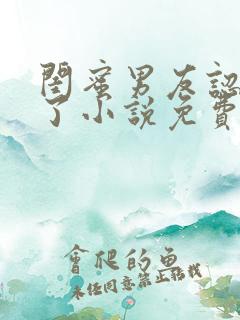 閨蜜男友認
了小說免費
會爬的魚
未经同意禁止转载